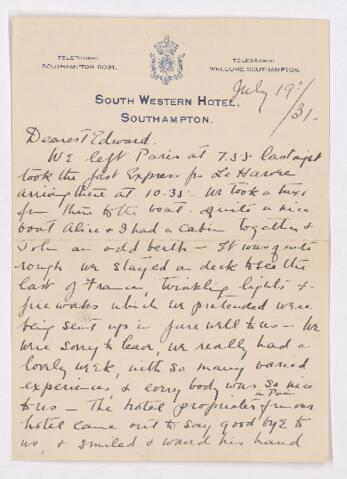 TELEPHONE:
SOUTHAMPTON 5031.
TELEGRAMS:
WELCOME, SOUTHAMPTON.
SOUTH WESTERN HOTEL,
SOUTHAMPTON.
July 19th/31.
Dearest Edward.
We left Paris at 7.55 last night
took the fast Express for Le Havre
arriving there at 10.35. We took a taxi
from there to the boat. quite a nice
boat Alice & I had a cabin together &
John an odd berth — It was quite
rough we stayed on deck to see the
last of France, twinkling lights &
fireworks which we pretended were
being sent up in farewell to us — We
were sorry to leave, we really had a
lovely week, with so many varied
experiences, & every body was so nice
to us — The hotel proprieter from our
in Paris
hotel came out to say good bye to
us, & smiled & waved his hand